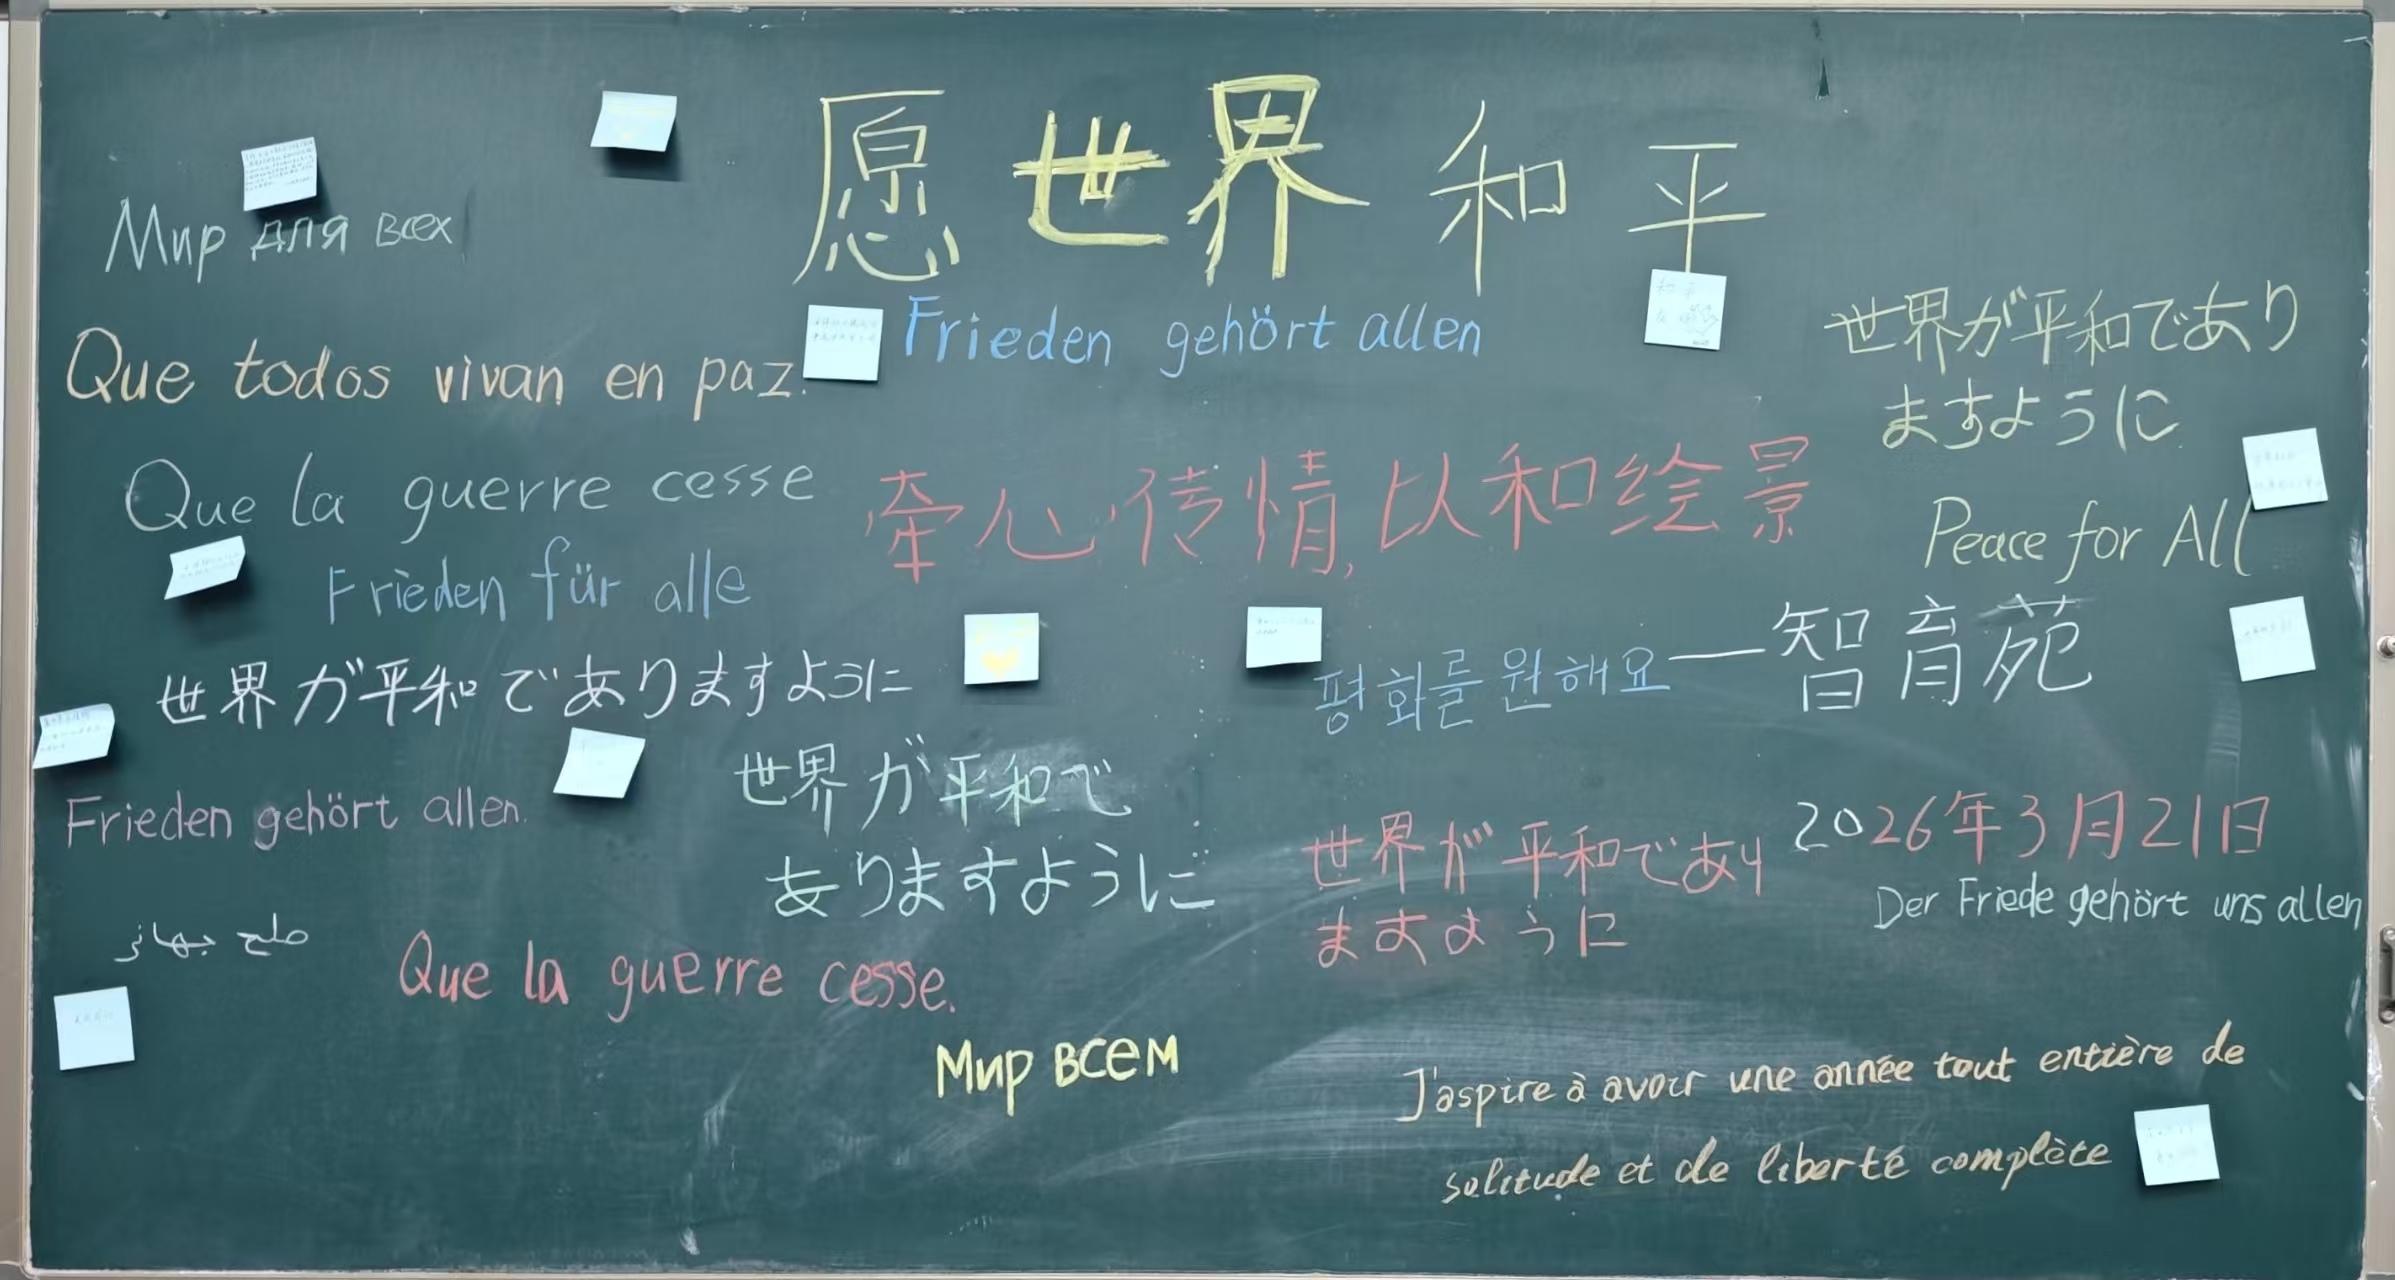 愿世界和平
Мир для всех
Frieden gehört allen
世界が平和であり
ますように
Que todos vivan en paz.
牵心传情,以和绘景
Que la guerre cesse
Peace for All
Frieden für alle
평화를 원해요
——智育苑
世界が平和でありますように
世界が平和で
ありますように
Frieden gehört allen.
2026年3月21日
世界が平和であり
ますように
Der Friede gehört uns allen
صلح جهانی
Que la guerre cesse.
Мир всем
J'aspire à avoir une année tout entière de
solitude et de liberté complète
和平